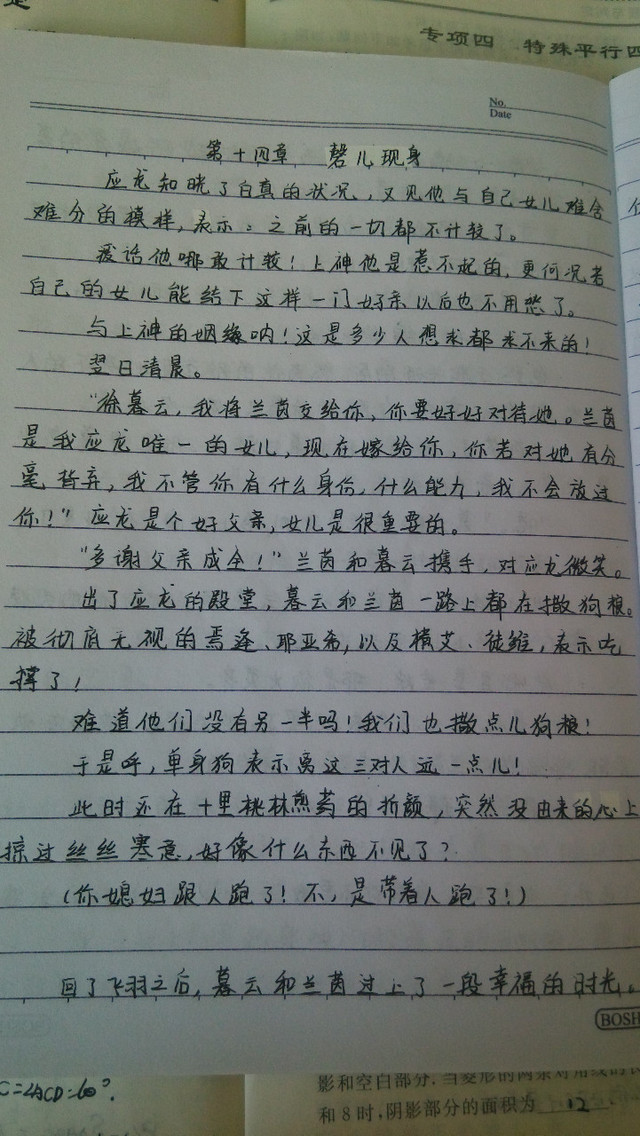 专项四 特殊平行四
No.
Date
第十四章 磬儿现身
应龙知晓了白真的状况，又见他与自己女儿难舍
难分的模样，表示：之前的一切都不计较了。
废话他哪敢计较！上神他是惹不起的，更何况若
自己的女儿能结下这样一门好亲以后也不用愁了。
与上神的姻缘呐！这是多少人想求都求不来的！
翌日清晨。
“徐暮云，我将兰茵交给你，你要好好对待她。兰茵
是我应龙唯一的女儿，现在嫁给你，你若对她有分
毫背弃，我不管你有什么身份，什么能力，我不会放过
你！”应龙是个好父亲，女儿是很重要的。
“多谢父亲成全！”兰茵和暮云携手，对应龙微笑。
出了应龙的殿堂，暮云和兰茵一路上都在撒狗粮。
被彻底无视的焉逢、耶亚希，以及横艾、徒维，表示吃
撑了！
难道他们没有另一半吗！我们也撒点儿狗粮！
于是乎，单身狗表示离这三对人远一点儿！
此时还在十里桃林煎药的折颜，突然没由来的心上
掠过丝丝寒意，好像什么东西不见了？
（你媳妇跟人跑了！不，是带着人跑了！）
回了飞羽之后，暮云和兰茵过上了一段幸福的时光。
BOSH
C=∠ACD=60°.
影和空白部分，当菱形的两条对角线的长
和8时，阴影部分的面积为 12